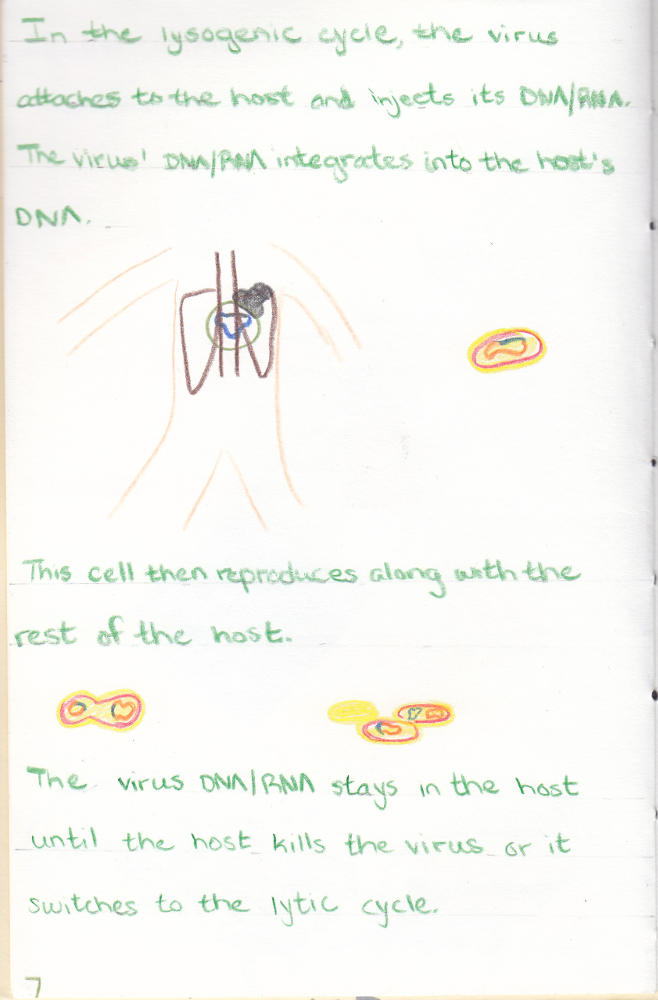 In the lysogenic cycle, the virus
attaches to the host and injects its DNA/RNA.
The virus' DNA/RNA integrates into the host's
DNA.
This cell then reproduces along with the
rest of the host.
The virus DNA/RNA stays in the host
until the host kills the virus or it
switches to the lytic cycle.
7